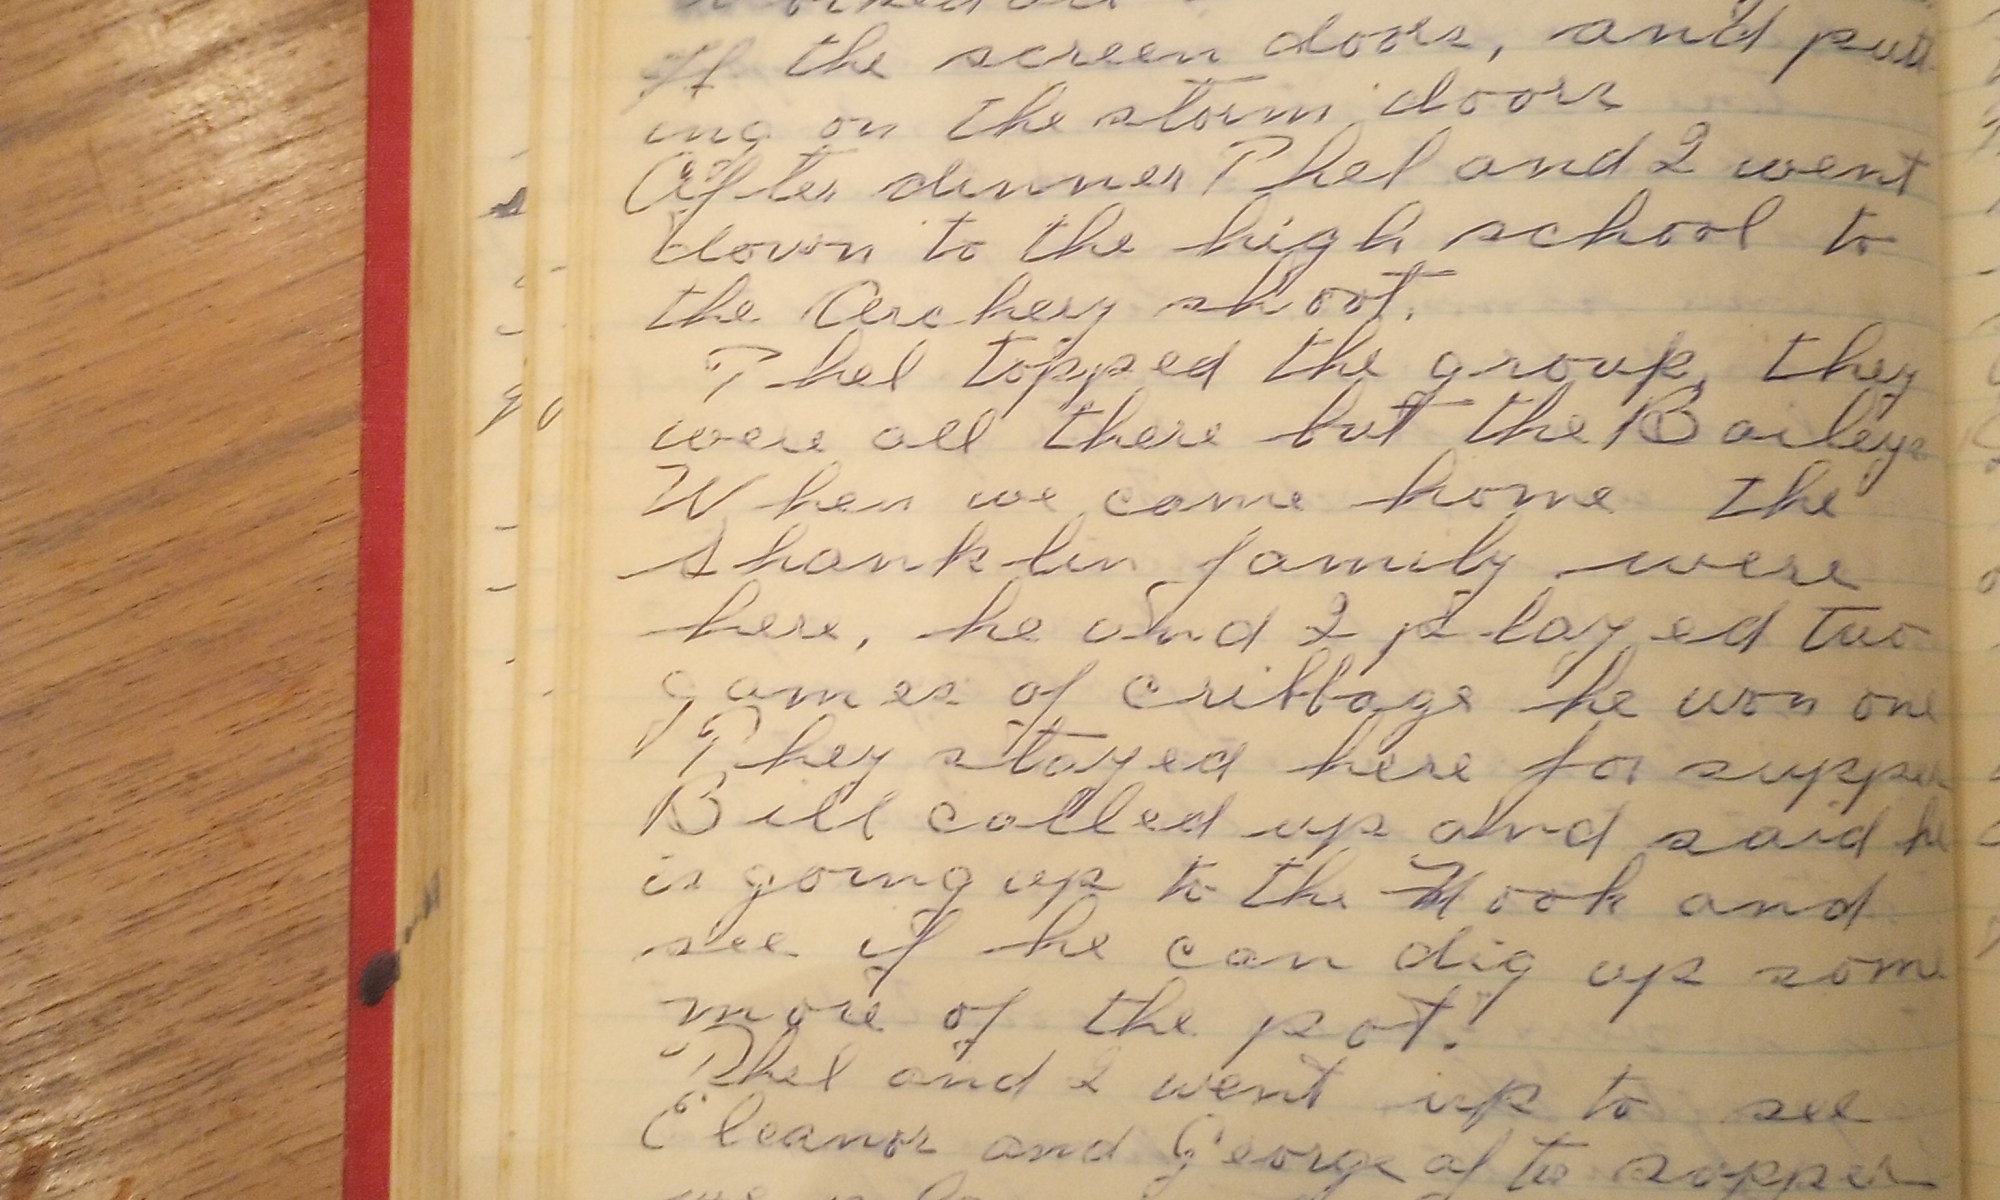 off the screen doors, and putt
ing on the storm doors
After dinner Phel and I went
down to the high school to
the Archery shoot.
Phel topped the group, they
were all there but the Baileys
When we came home the
Shanklin family were
here, he and I played two
games of cribbage he won one
They stayed here for supper
Bill called up and said he
is going up to the Hook and
see if he can dig up some
more of the pot.
Phel and I went up to see
Eleanor and George after supper